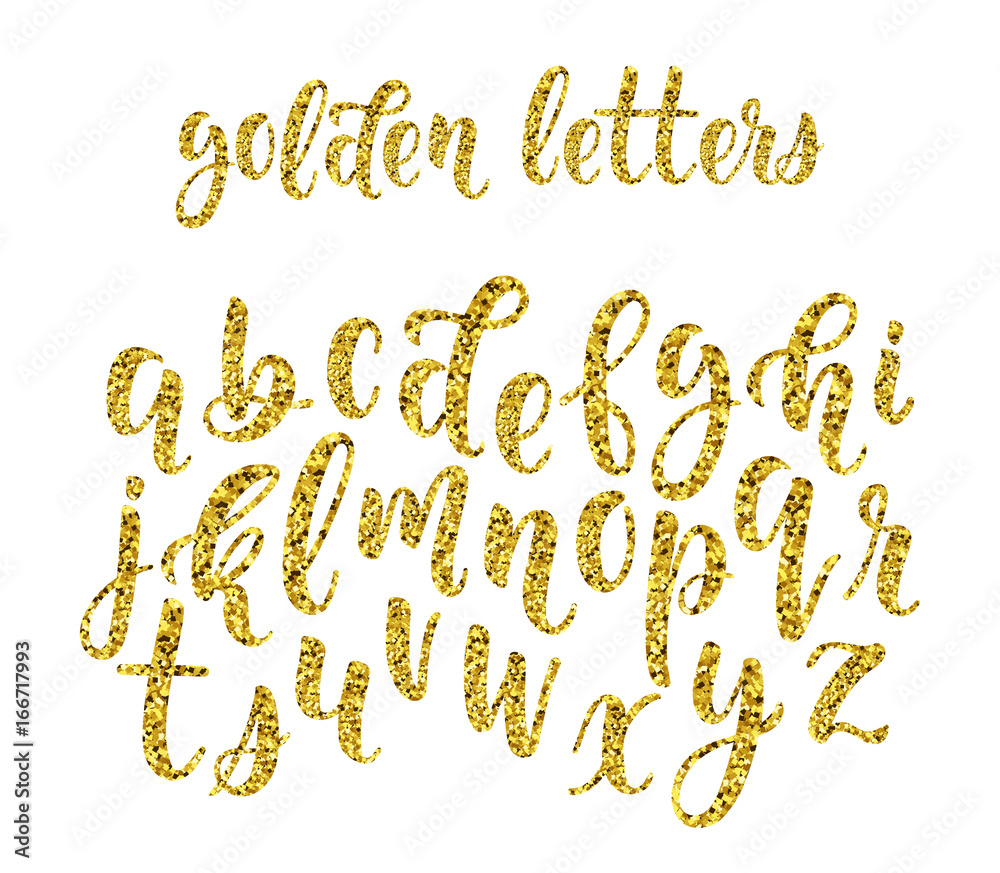 golden letters
a b c d e f g h i
j k l m n o p q r
t s u v w x y z
Adobe Stock | #166717993